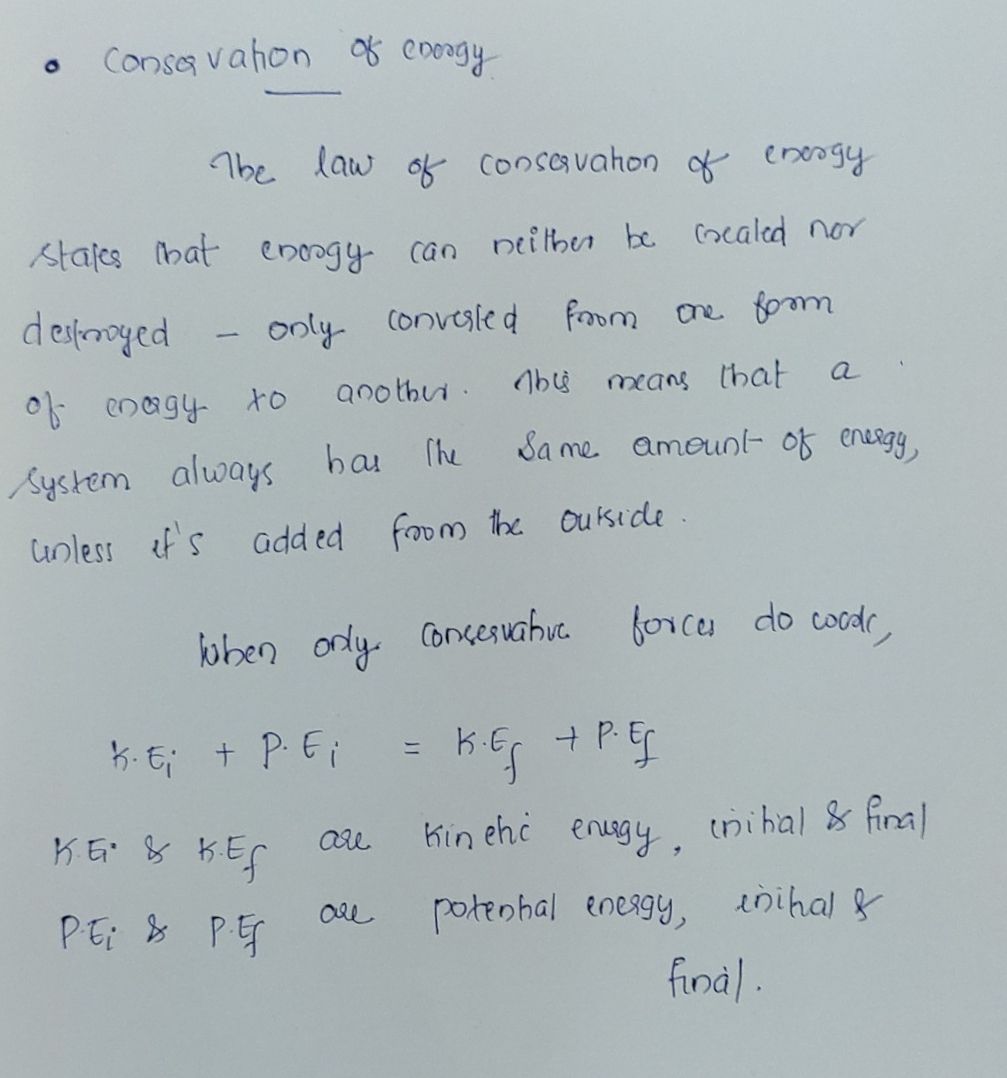 • Conservation of energy
The law of conservation of energy
states that energy can neither be created nor
destroyed - only converted from one form
of energy to another. This means that a
system always has the same amount of energy,
unless it's added from the outside.
When only conservative forces do work,
K.Ei + P.Ei = K.Ef + P.Ef
K.Ei & K.Ef are Kinetic energy, initial & final
P.Ei & P.Ef are potential energy, initial &
final.